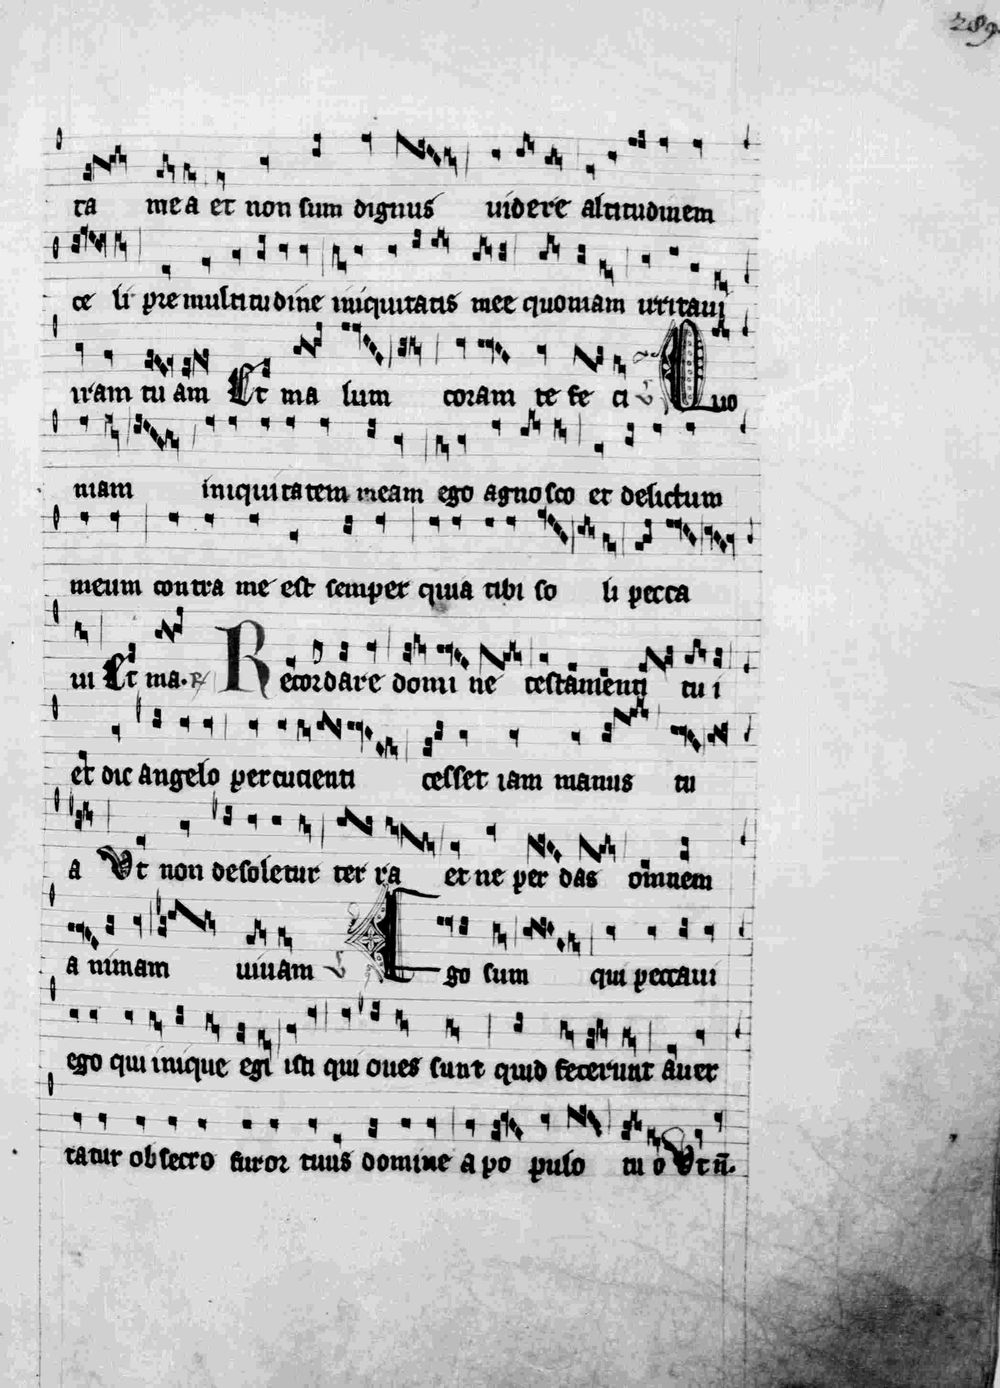 289.
ta mea et non sum dignus uidere altitudinem
ce li pre multitudine iniquitatis mee quoniam irritaui
iram tu am Et ma lum coram te fe ci Quo
niam iniquitatem meam ego agnosco et delictum
meum contra me est semper quia tibi so li pecca
ui Et ma. Recordare domi ne testamenti tu i
et dic angelo percutienti cesset iam manus tu
a Ut non desoletur ter ra et ne per das omnem
a nimam uiuam Ego sum qui peccaui
ego qui inique egi isti qui oues sunt quid fecerunt auer
tatur obsecro furor tuus domine a po pulo tu o Ut n̄.